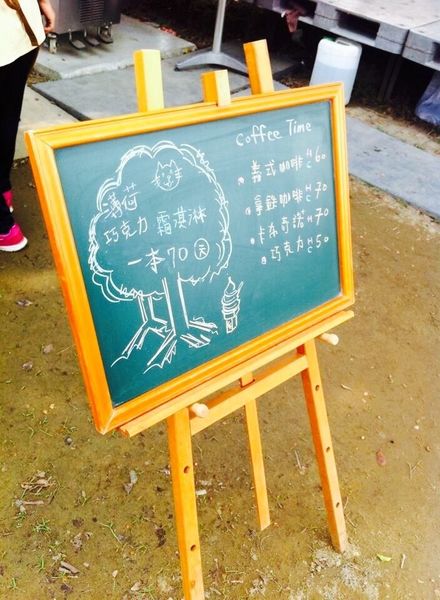 薄荷
巧克力 霜淇淋
一本 70 元
Coffee Time
義式咖啡 H/C 60
拿鐵咖啡 H/C 70
卡布奇諾 H/C 70
巧克力 H/C 50